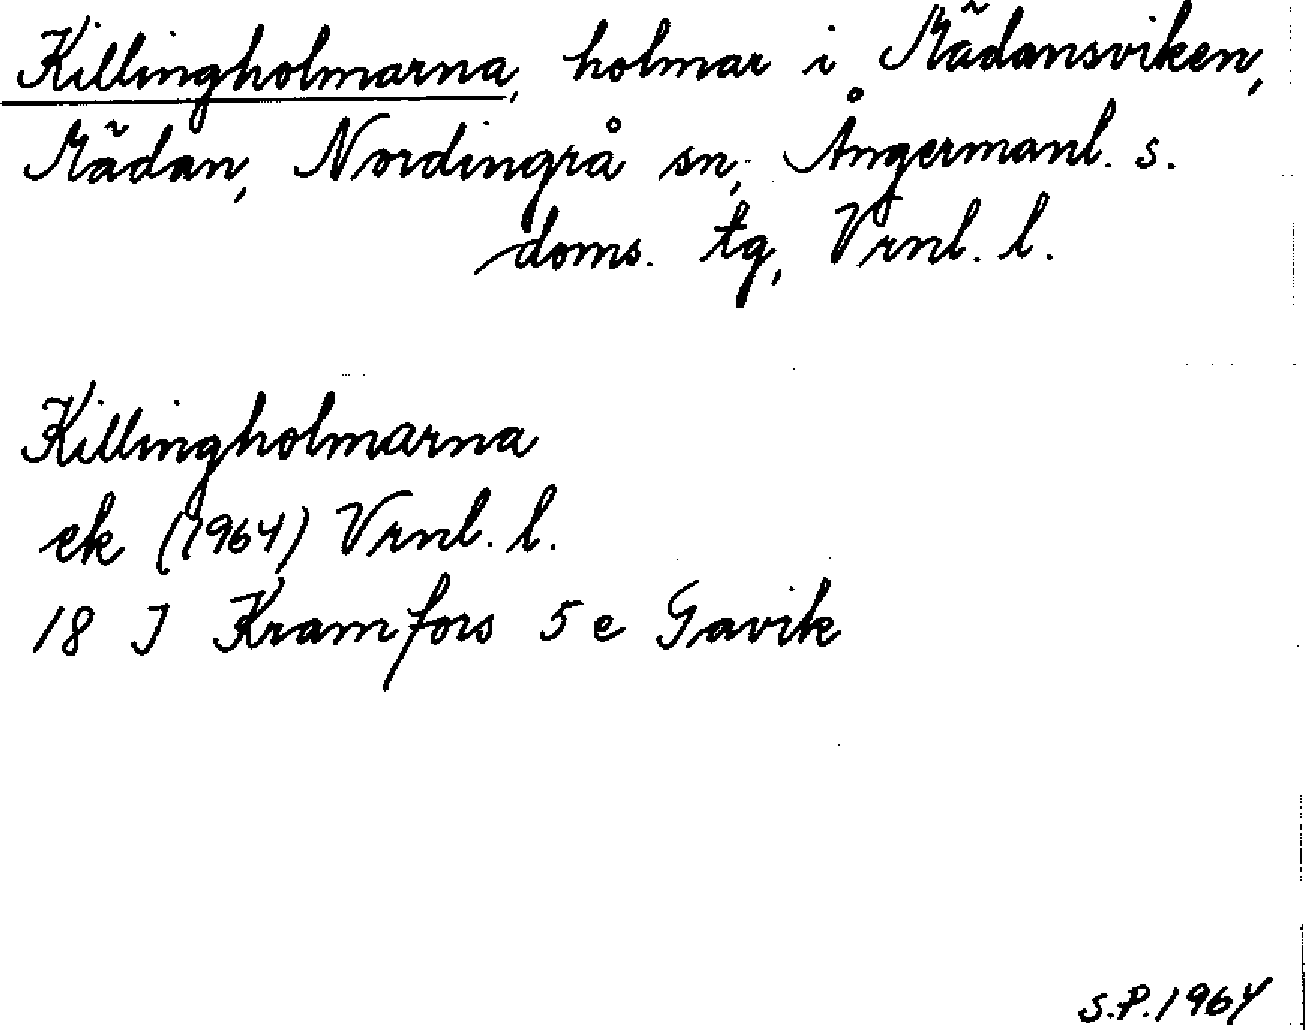 Killingholmarna, holmar i Mädansviken,
Mädan, Nordingrå sn, Ångermanl. s.
doms. tg, Vrnl. l.
Killingholmarna
ek (1964) Vrnl. l.
18 I Kramfors 5 e Gavik
S.P. 1964